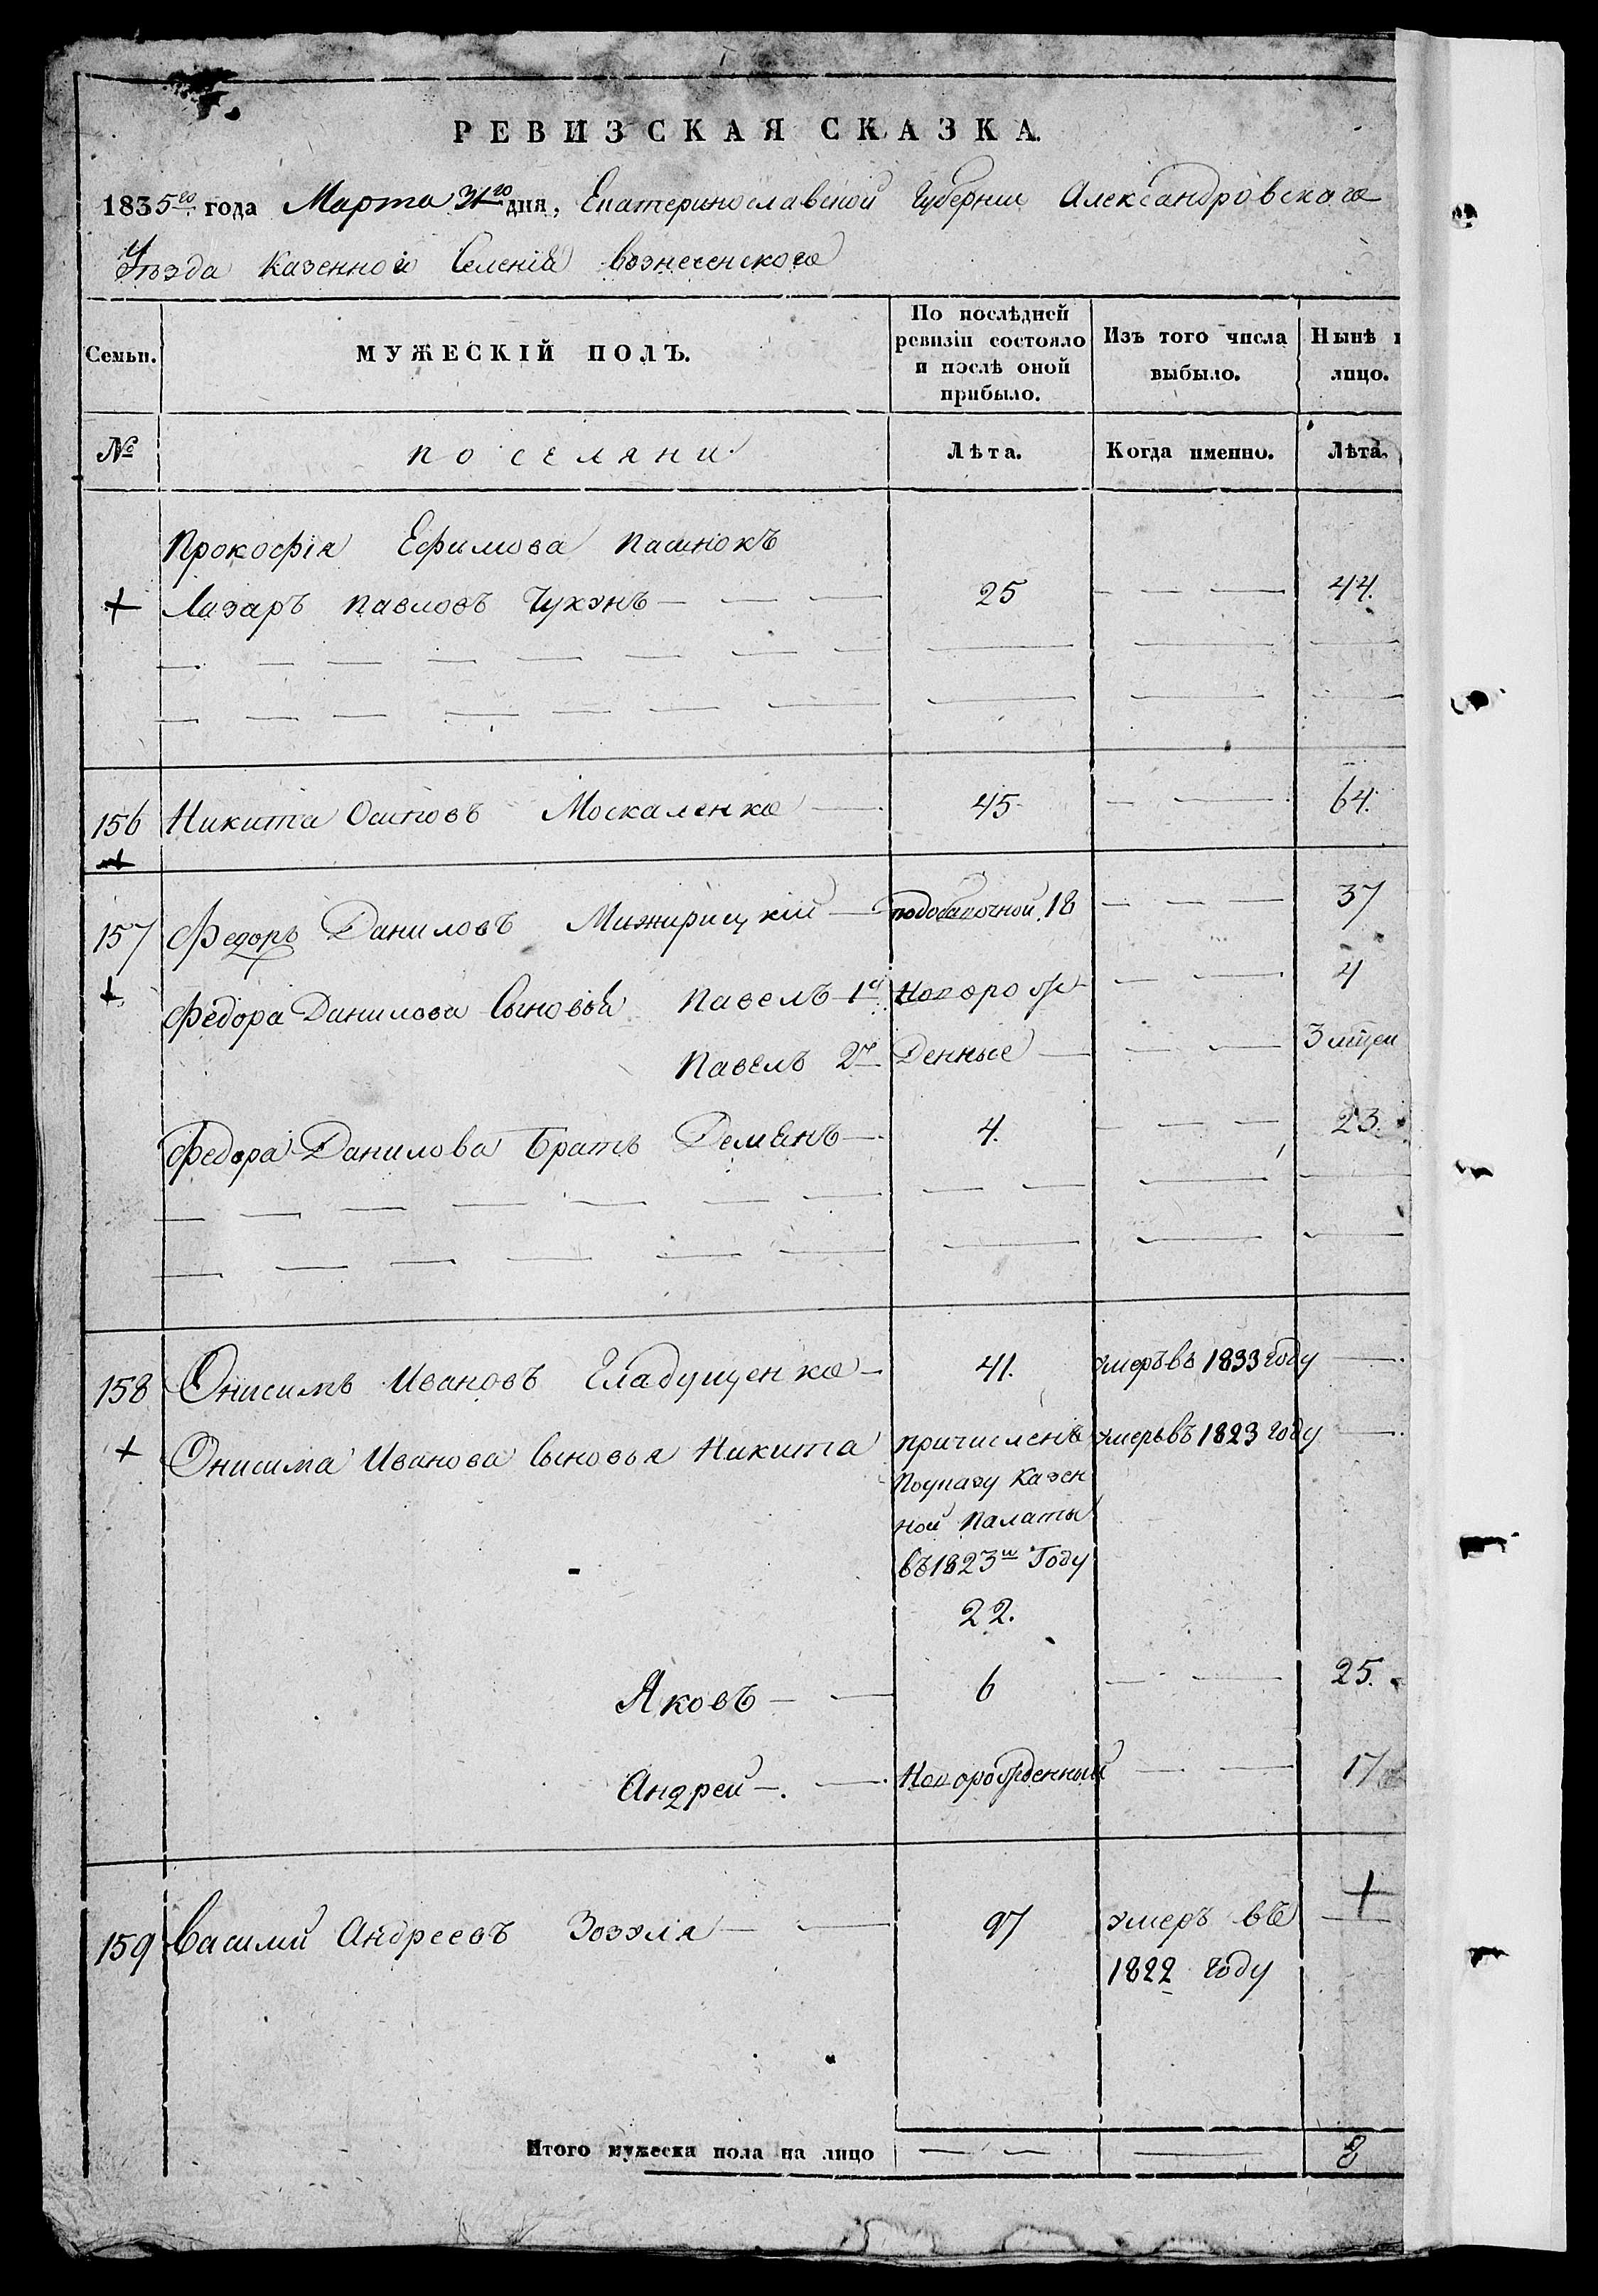 РЕВИЗСКАЯ СКАЗКА.
1835го года Марта 31го дня, Екатеринославской Губернии Александровского
Уезда Казенного Селения Вознесенского
Семьи. МУЖЕСКІЙ ПОЛЪ. По послѣдней ревизіи состояло и послѣ оной прибыло. Изъ того числа выбыло. Нынѣ лицо.
№ поселяни Лѣта. Когда именно. Лѣта.
Прокофія Ефимова пасинокъ
+ Лазаръ Павловъ Чухэнъ 25 44.
156 Никита Осиповъ Москаленко 45 64.
157 Федоръ Даниловъ Мижирицкій 18 37
Федора Данилова Сыновья Павелъ 1й Новорож 4
Павелъ 2й Денные 3
Федора Данилова Братъ Демянъ 4. 23.
158 Онисимъ Ивановъ Гладущенко 41. умеръ въ 1833 году
+ Онисима Иванова Сыновья Никита причисленъ умеръ въ 1823 году
По указу Казен
ной Палаты
въ 1823м Году
22.
Яковъ 6 25.
Андрей Новорожденный 17
159 Василий Андреевъ Зозэля 97 умеръ въ +
1822 году
Итого мужеска пола на лицо 8